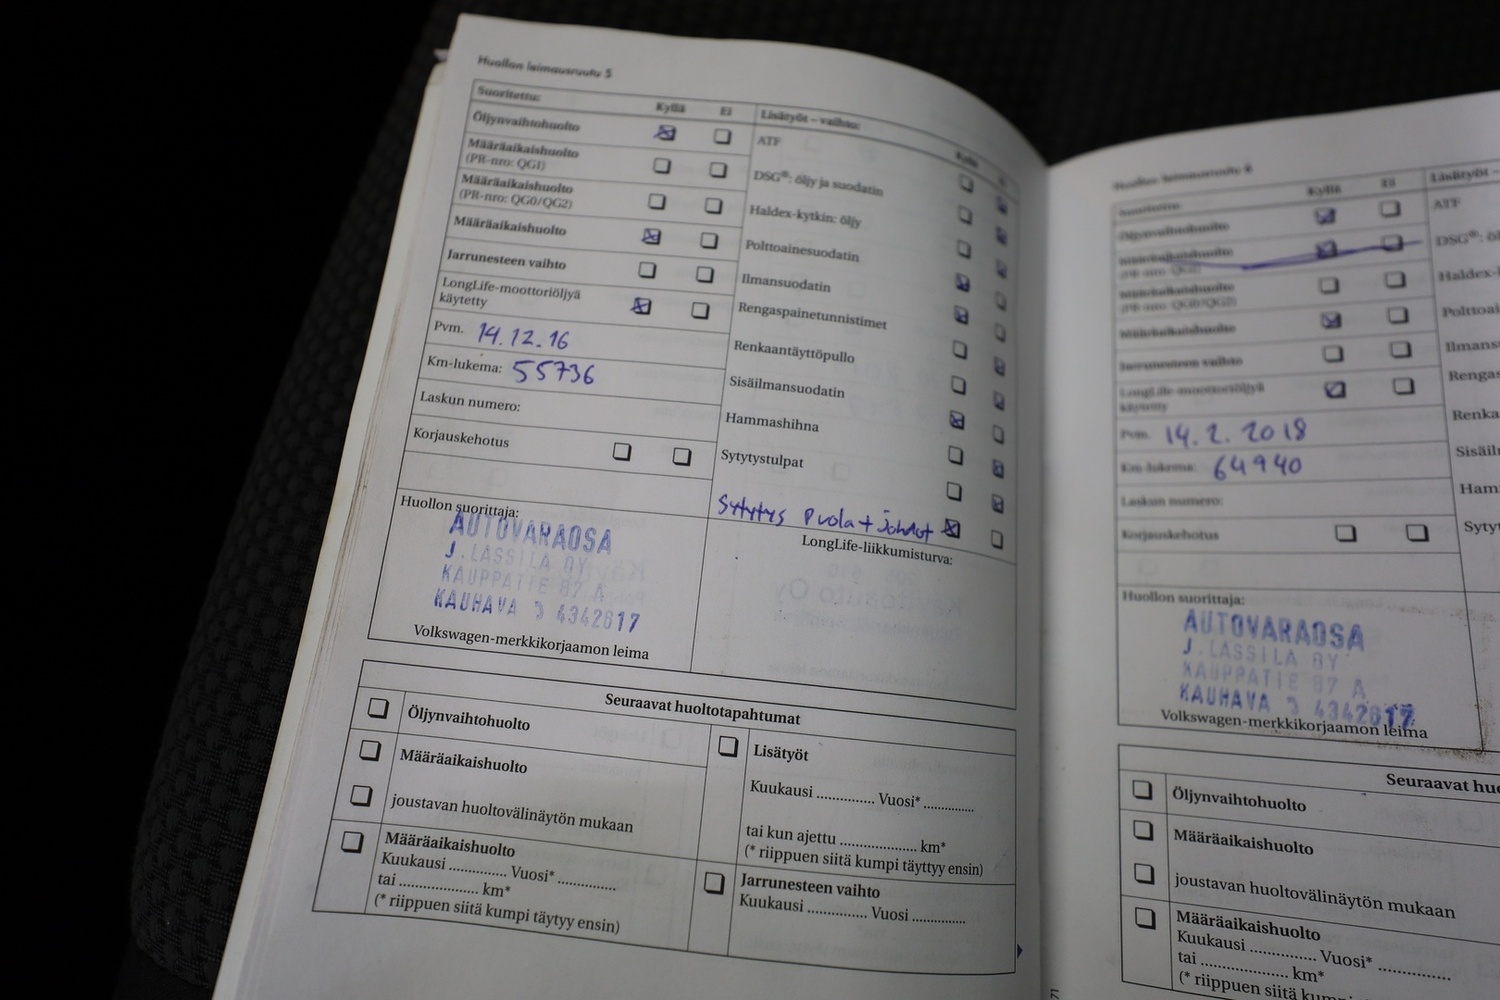 Huollon leimausruutu 5
Suoritettu: Kyllä Ei
Öljynvaihtohuolto
Määräaikaishuolto
(PR-nro: QG1)
Määräaikaishuolto
(PR-nro: QG0/QG2)
Määräaikaishuolto
Jarrunesteen vaihto
LongLife-moottoriöljyä
käytetty
Pvm. 14.12.16
Km-lukema: 55736
Laskun numero:
Korjauskehotus
Huollon suorittaja:
AUTOVARAOSA
J. LASSILA OY
KAUPPATIE 87 A
KAUHAVA 4342617
Volkswagen-merkkikorjaamon leima
Lisätyöt – vaihto: Kyllä
ATF
DSG®: öljy ja suodatin
Haldex-kytkin: öljy
Polttoainesuodatin
Ilmansuodatin
Rengaspainetunnistimet
Renkaantäyttöpullo
Sisäilmansuodatin
Hammashihna
Sytytystulpat
Sytytys Puola + johdot
LongLife-liikkumisturva:
Seuraavat huoltotapahtumat
Öljynvaihtohuolto
Määräaikaishuolto
joustavan huoltovälinäytön mukaan
Määräaikaishuolto
Kuukausi .............. Vuosi* ..............
tai ................... km*
(* riippuen siitä kumpi täytyy ensin)
Lisätyöt
Kuukausi .............. Vuosi* ............
tai kun ajettu ................... km*
(* riippuen siitä kumpi täyttyy ensin)
Jarrunesteen vaihto
Kuukausi .............. Vuosi .............
Huollon leimausruutu 6
Suoritettu: Kyllä Ei
Öljynvaihtohuolto
Määräaikaishuolto
(PR-nro: QG1)
Määräaikaishuolto
(PR-nro: QG0/QG2)
Määräaikaishuolto
Jarrunesteen vaihto
LongLife-moottoriöljyä
käytetty
Pvm. 14.2.2018
Km-lukema: 64940
Laskun numero:
Korjauskehotus
Huollon suorittaja:
AUTOVARAOSA
J. LASSILA OY
KAUPPATIE 87 A
KAUHAVA 4342617
Volkswagen-merkkikorjaamon leima
Lisätyöt –
ATF
DSG®: öl
Haldex-k
Polttoai
Ilmans
Renga
Renka
Sisäil
Ham
Sytyt
Seuraavat huo
Öljynvaihtohuolto
Määräaikaishuolto
joustavan huoltovälinäytön mukaan
Määräaikaishuolto
Kuukausi .............. Vuosi* .................
tai ................... km*
(* riippuen siitä kumpi täy
71